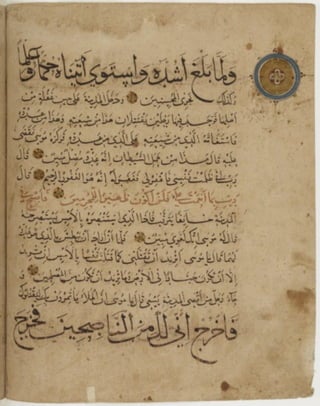 ولما بلغ أشده واستوى آتيناه حكما وعلما
وكذلك نجزي المحسنين ودخل المدينة على حين غفلة من
أهلها فوجد فيها رجلين يقتتلان هذا من شيعته وهذا من عدوه
فاستغاثه الذي من شيعته على الذي من عدوه فوكزه موسى فقضى
عليه قال هذا من عمل الشيطان إنه عدو مضل مبين قال
رب إني ظلمت نفسي فاغفر لي فغفر له إنه هو الغفور الرحيم قال
رب بما أنعمت علي فلن أكون ظهيرا للمجرمين فأصبح في
المدينة خائفا يترقب فإذا الذي استنصره بالأمس يستصرخه
قال له موسى إنك لغوي مبين فلما أن أراد أن يبطش بالذي هو عدو
لهما قال يا موسى أتريد أن تقتلني كما قتلت نفسا بالأمس إن تريد
إلا أن تكون جبارا في الأرض وما تريد أن تكون من المصلحين و
جاء رجل من أقصى المدينة يسعى قال يا موسى إن الملأ يأتمرون بك ليقتلوك
فاخرج إني لك من الناصحين فخرج